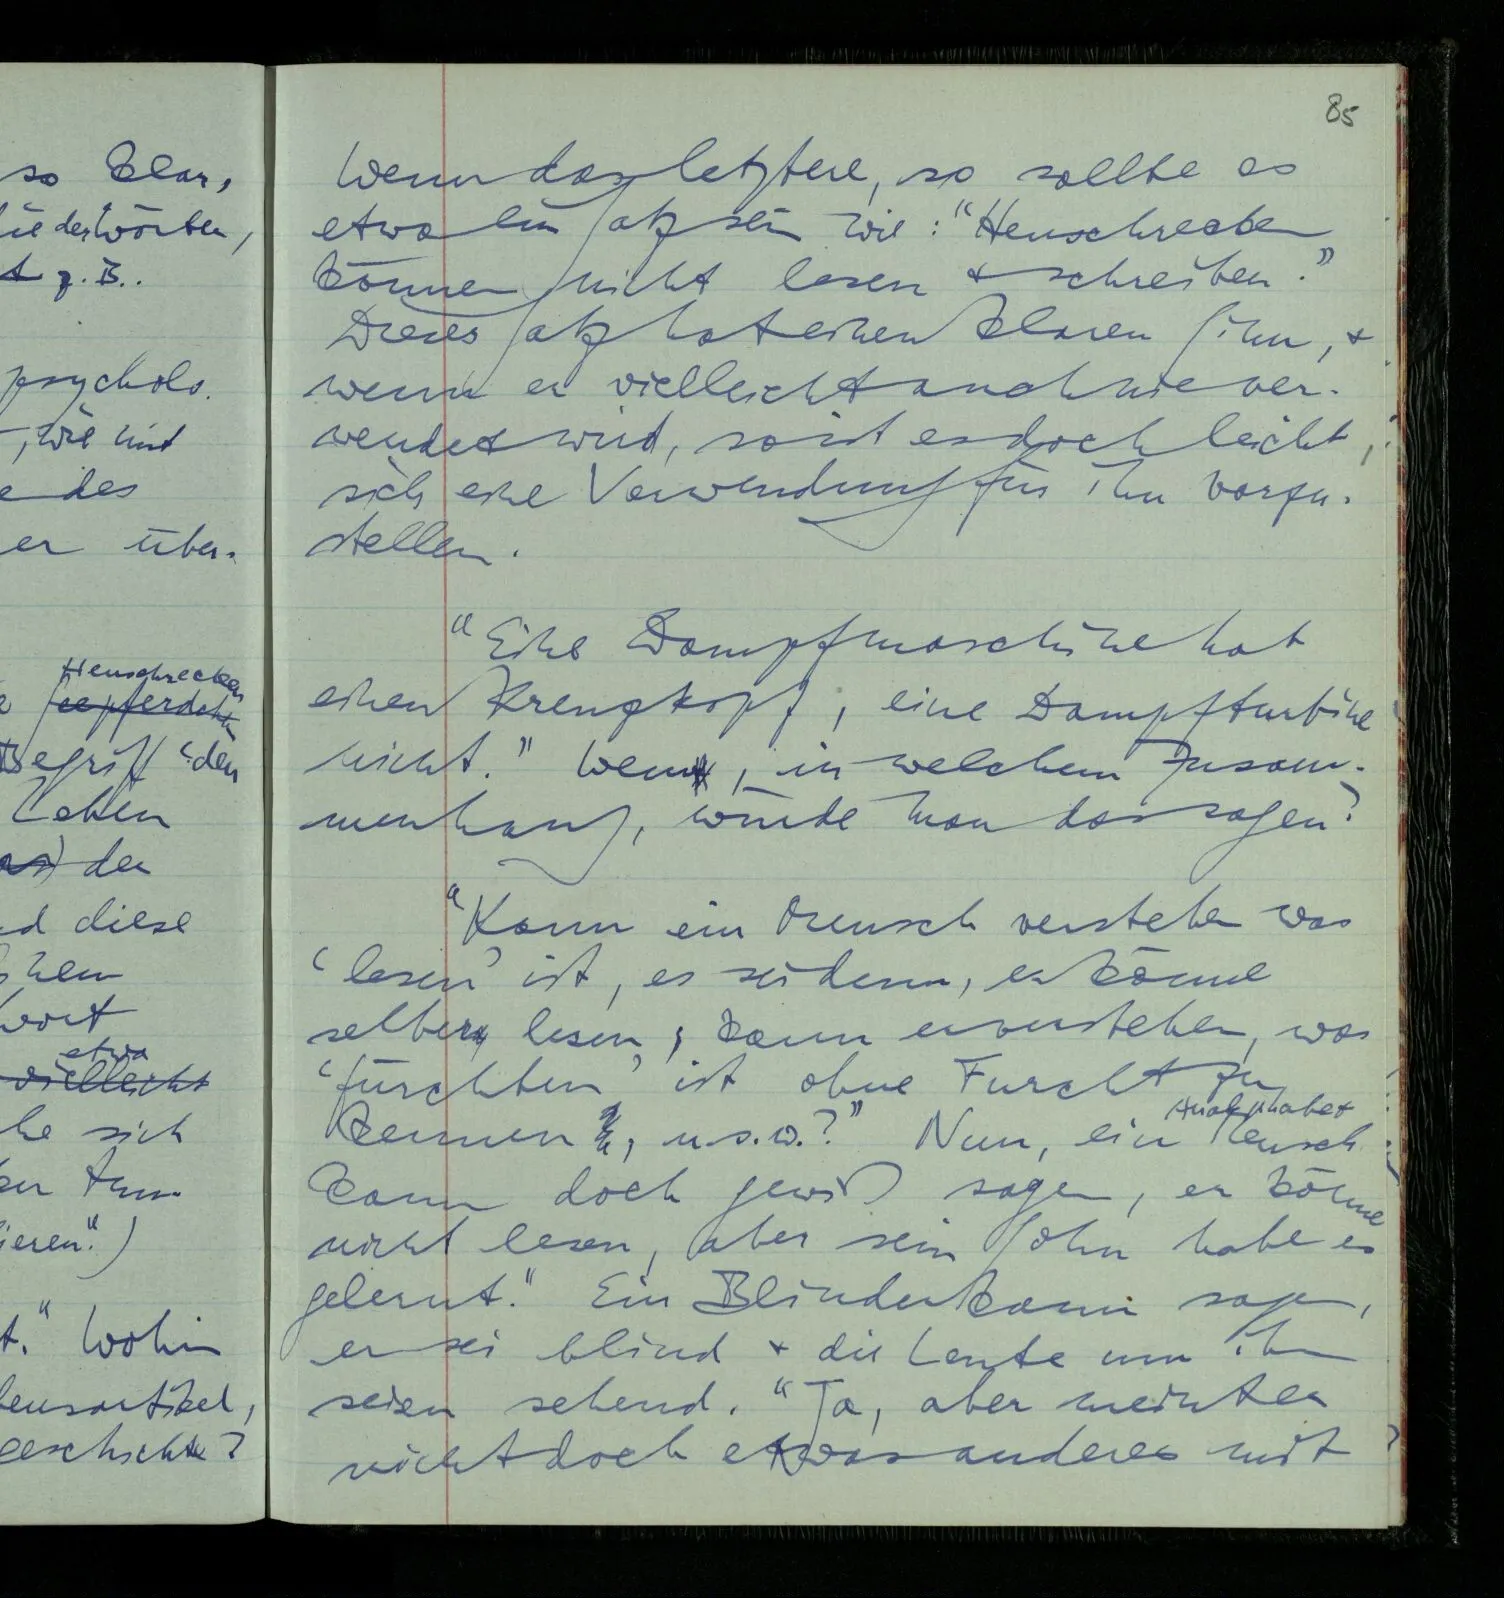 so klar,
für den Wörter,
z.B..
psycholo.
, wie sind
des
er über-
Heuschrecken
Seepferdchen
Begriff "den
Leben
der
und diese
wort
etwa
vielleicht
sich
ieren".)
t." Wohin
ensartikel,
geschichte?
85
Wenn das letztere, so sollte es
etwa ein Satz sein wie: "Heuschrecken
können nicht lesen & schreiben."
Dieser Satz hat einen klaren Sinn, &
wenn er vielleicht auch nie ver-
wendet wird, so ist es doch leicht,
sich eine Verwendung für ihn vorzu-
stellen.
"Eine Dampfmaschine hat
einen Kreuzkopf, eine Dampfturbine
nicht." Wem, in welchem Zusam-
menhang, würde man das sagen?
"Kann ein Mensch verstehen was
'lesen' ist, es sei denn, er könne
selber lesen; kann er verstehen, was
'fürchten' ist ohne Furcht zu
Analphabet
kennen, u.s.w.?" Nun, ein Mensch
kann doch gewiß sagen, er könne
nicht lesen, aber sein Sohn habe es
gelernt." Ein Blinder kann sagen,
er sei blind & die Leute um ihn
seien sehend. "Ja, aber meint er
nicht doch etwas anderes mit